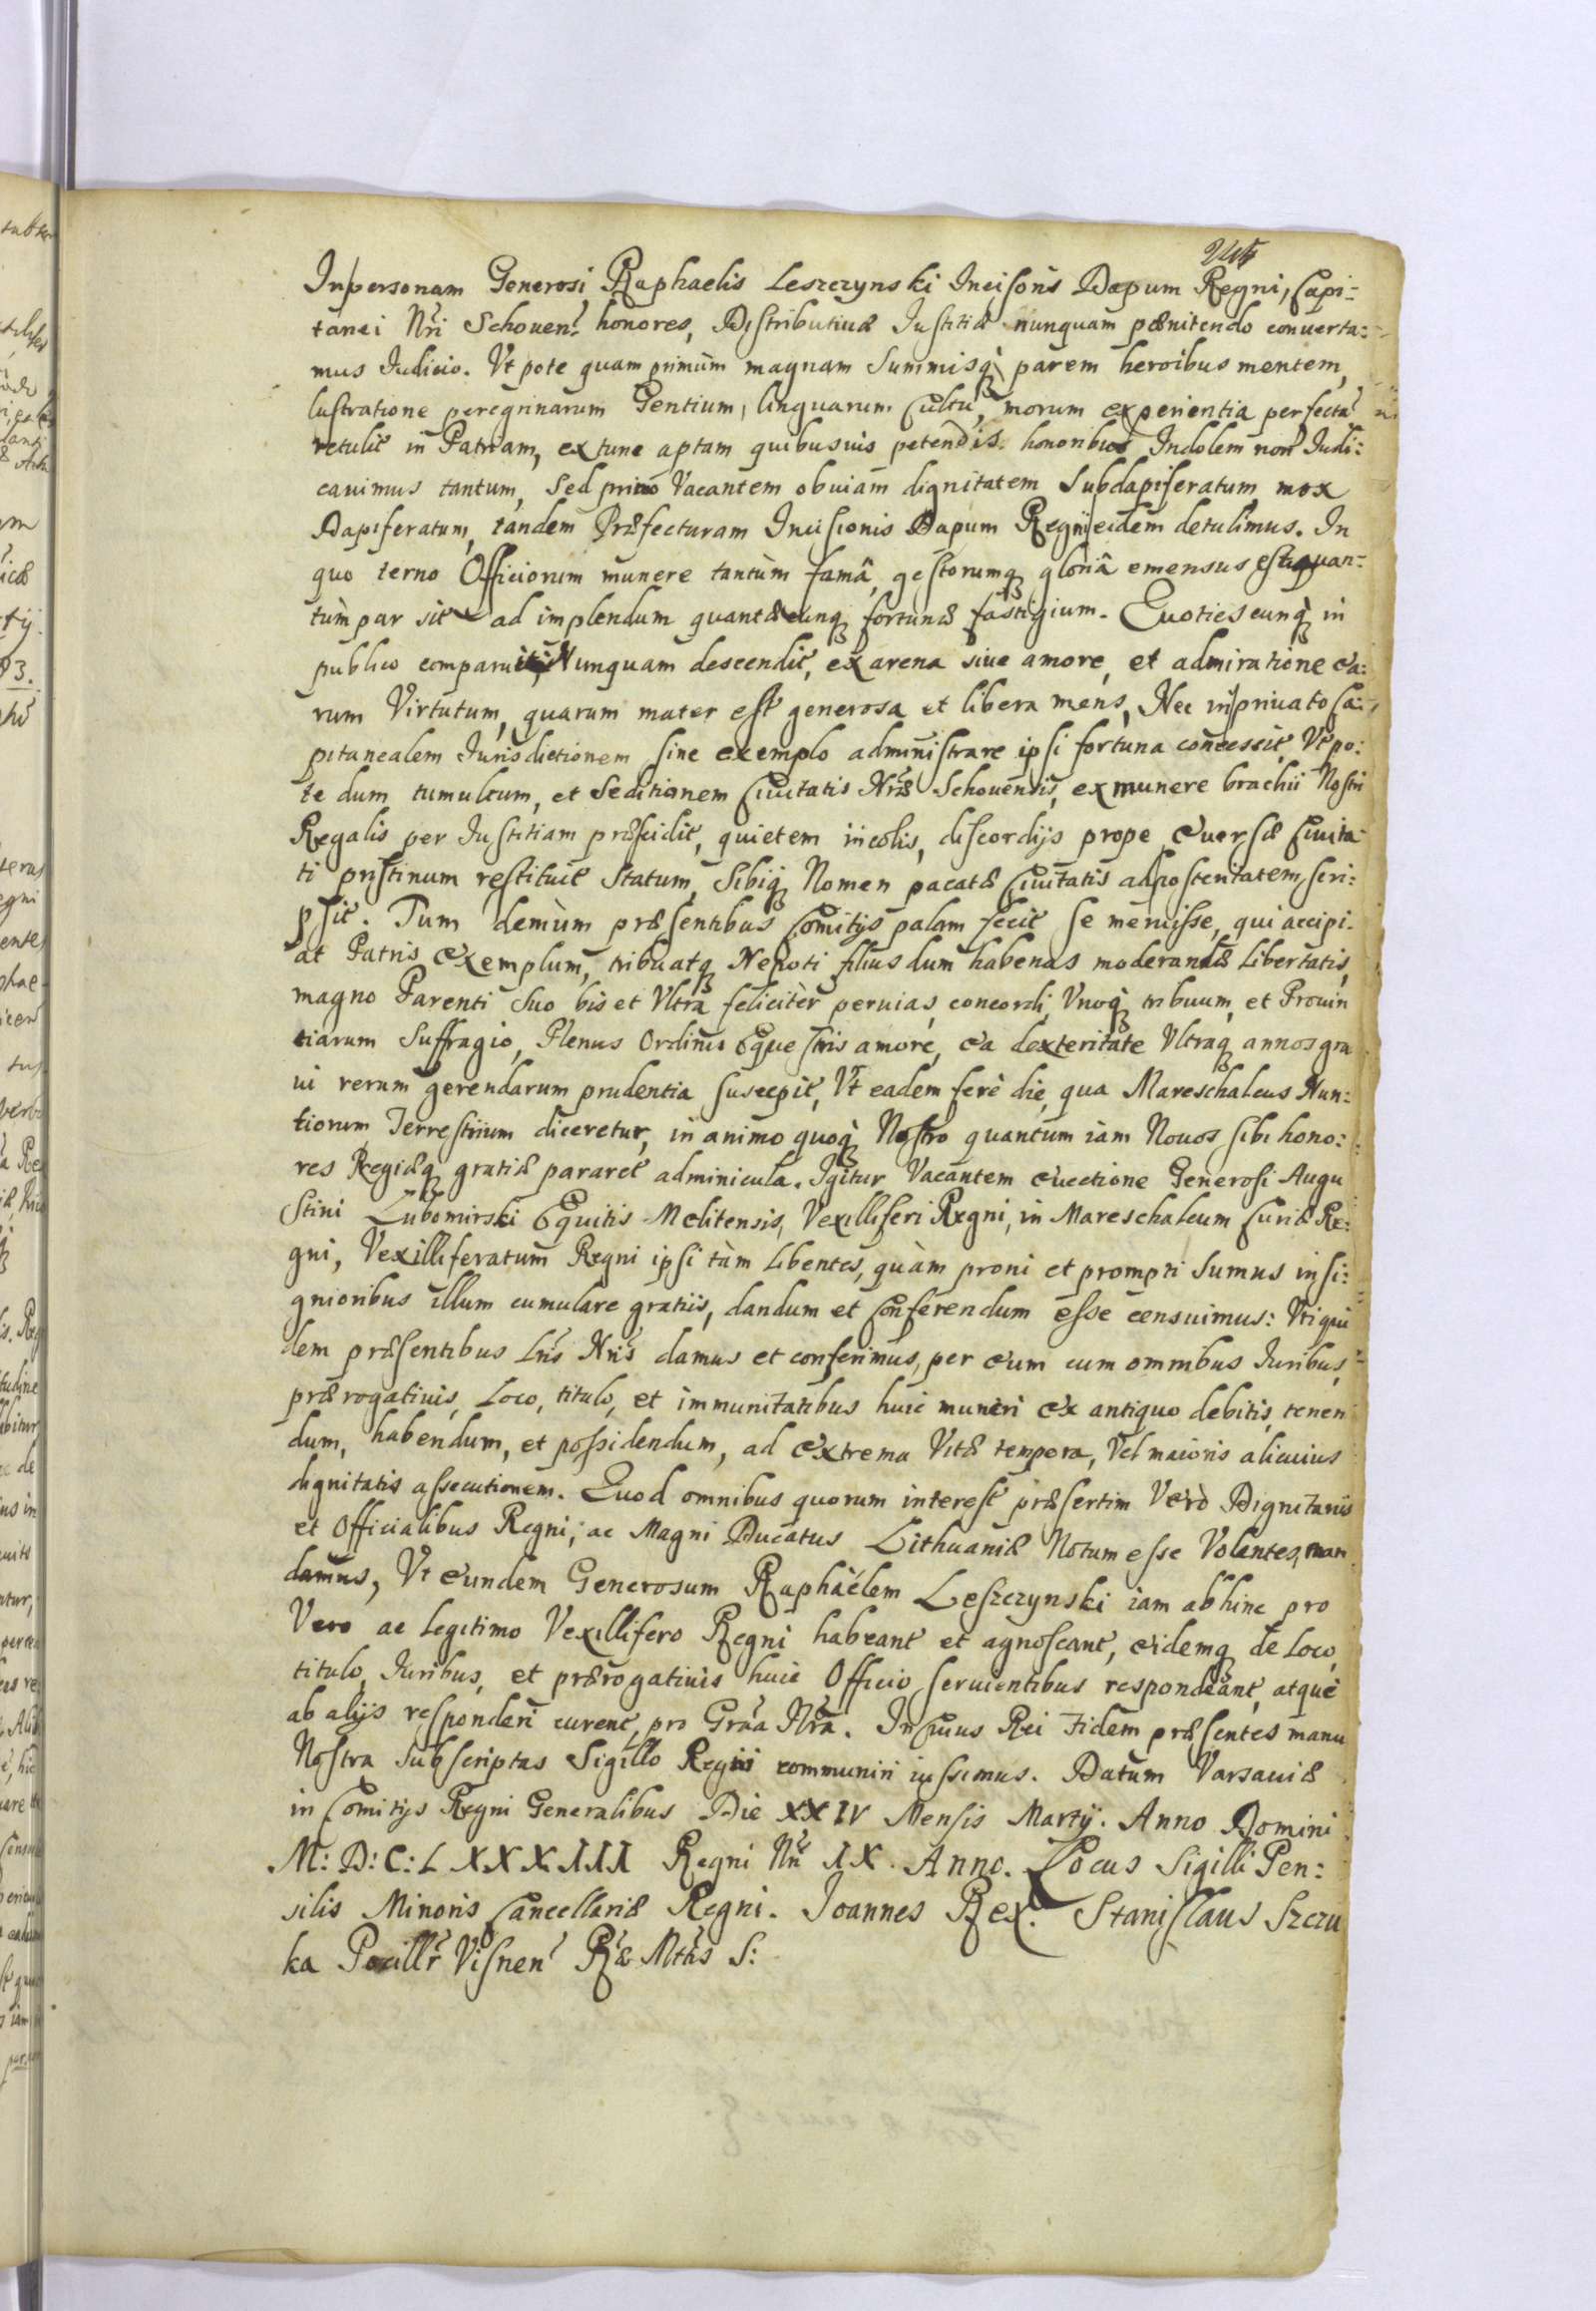 Inpersonam Generosi Raphaelis Leszczynski Incisoris Dapum Regni, Capi-
tanei Nri Schouen. honores, Distributiuæ Iustitiæ nunquam pænitendo conuerta:
mus Iudicio. Vt pote quam primùm magnam Summisq; parem heroibus mentem,
lustratione peregrinarum Gentium, linguarum Cultu, morum experientia perfecta
retulit in Patriam, ex tunc aptam quibusuis petendis honoribus Indolem non Iudi:
cauimus tantum, Sed primo Vacantem obuiam dignitatem Subdapiferatum, mox
Dapiferatum, tandem Præfecturam Incisionis Dapum Regni eidem detulimus. In
quo terno Officiorum munere tantùm famâ, gestorumq; gloriâ emensus est, quan-
tùm par sit ad implendum quantæcunq; fortunæ fastigium. Quotiescunq; in
publico comparuit, Nunquam descendit, ex arena siue amore, et admiratione ea:
rum Virtutum, quarum mater est generosa et libera mens, Nec in priuato Ca:
pitanealem Iurisdictionem sine exemplo administrare ipsi fortuna concessit, Vt po:
te dum tumultum, et Seditionem Ciuitatis Nræ Schouensis, ex munere brachii Nostri
Regalis per Iustitiam præscidit, quietem incolis, discordijs prope euersæ Ciuita-
ti pristinum restituit Statum, Sibiq; Nomen pacatæ Ciuitatis ad posteritatem, scri:
psit. Tum demùm præsentibus Comitijs palam fecit se meruisse, qui accipi-
at Patris Exemplum, tribuatq; Nepoti filius dum habenas moderandæ Libertatis,
magno Parenti Suo bis et Vltra felicitèr peruias, concordi, Vnoq; tribuum, et Prouin
tiarum Suffragio, Plenus Ordinis Equestris amore, ea dexteritate Vltraq; annos gra
ui rerum gerendarum prudentia suscepit, Vt eadem ferè die, qua Mareschalcus Nun:
tiorum Terrestrium diceretur, in animo quoq; Nostro quantum iam Nouos sibi hono:
res Regiæq; gratiæ pararet adminicula. Igitur Vacantem euectione Generosi Augu
stini Lubomirski Equitis Melitensis, Vexilliferi Regni, in Mareschalcum Curiæ Re:
gni, Vexilliferatum Regni ipsi tàm libentes, quàm proni et prompti Sumus insi:
gnioribus illum cumulare gratiis, dandum et Conferendum esse censuimus: Vti qui
dem præsentibus Lris Nris damus et conferimus, per eum cum omnibus Iuribus,
prærogatiuis, Loco, titulo, et immunitatibus huic muneri ex antiquo debitis, tenen
dum, habendum, et possidendum, ad extrema Vitæ tempora, Vel maioris alicuius
dignitatis assecutionem. Quod omnibus quorum interest præsertim Verò Dignitariis
et Officialibus Regni, ac Magni Ducatus Lithuaniæ Notum esse Volentes, man
damus, Vt eundem Generosum Raphàélem Leszczynski iam abhinc pro
Vero ac Legitimo Vexillifero Regni habeant et agnoscant, eidemq; de Loco,
titulo, Iuribus, et prærogatiuis huic Officio seruientibus respondeant, atque
ab alijs responderi curent, pro Gràa Nra. In Cuius Rei Fidem præsentes manu
Nostra Subscriptas Sigillo Regni communiri iussimus. Datum Varsauiæ
in Comitijs Regni Generalibus Die XXIV Mensis Martij. Anno Domini
M: D: C: L XXX III Regni Nri IX. Anno. Locus Sigilli Pen:
silis Minoris Cancellariæ Regni. Joannes Rex. Stanislaus Szczu
ka Pocillr Visnen Ræ Mttis S: